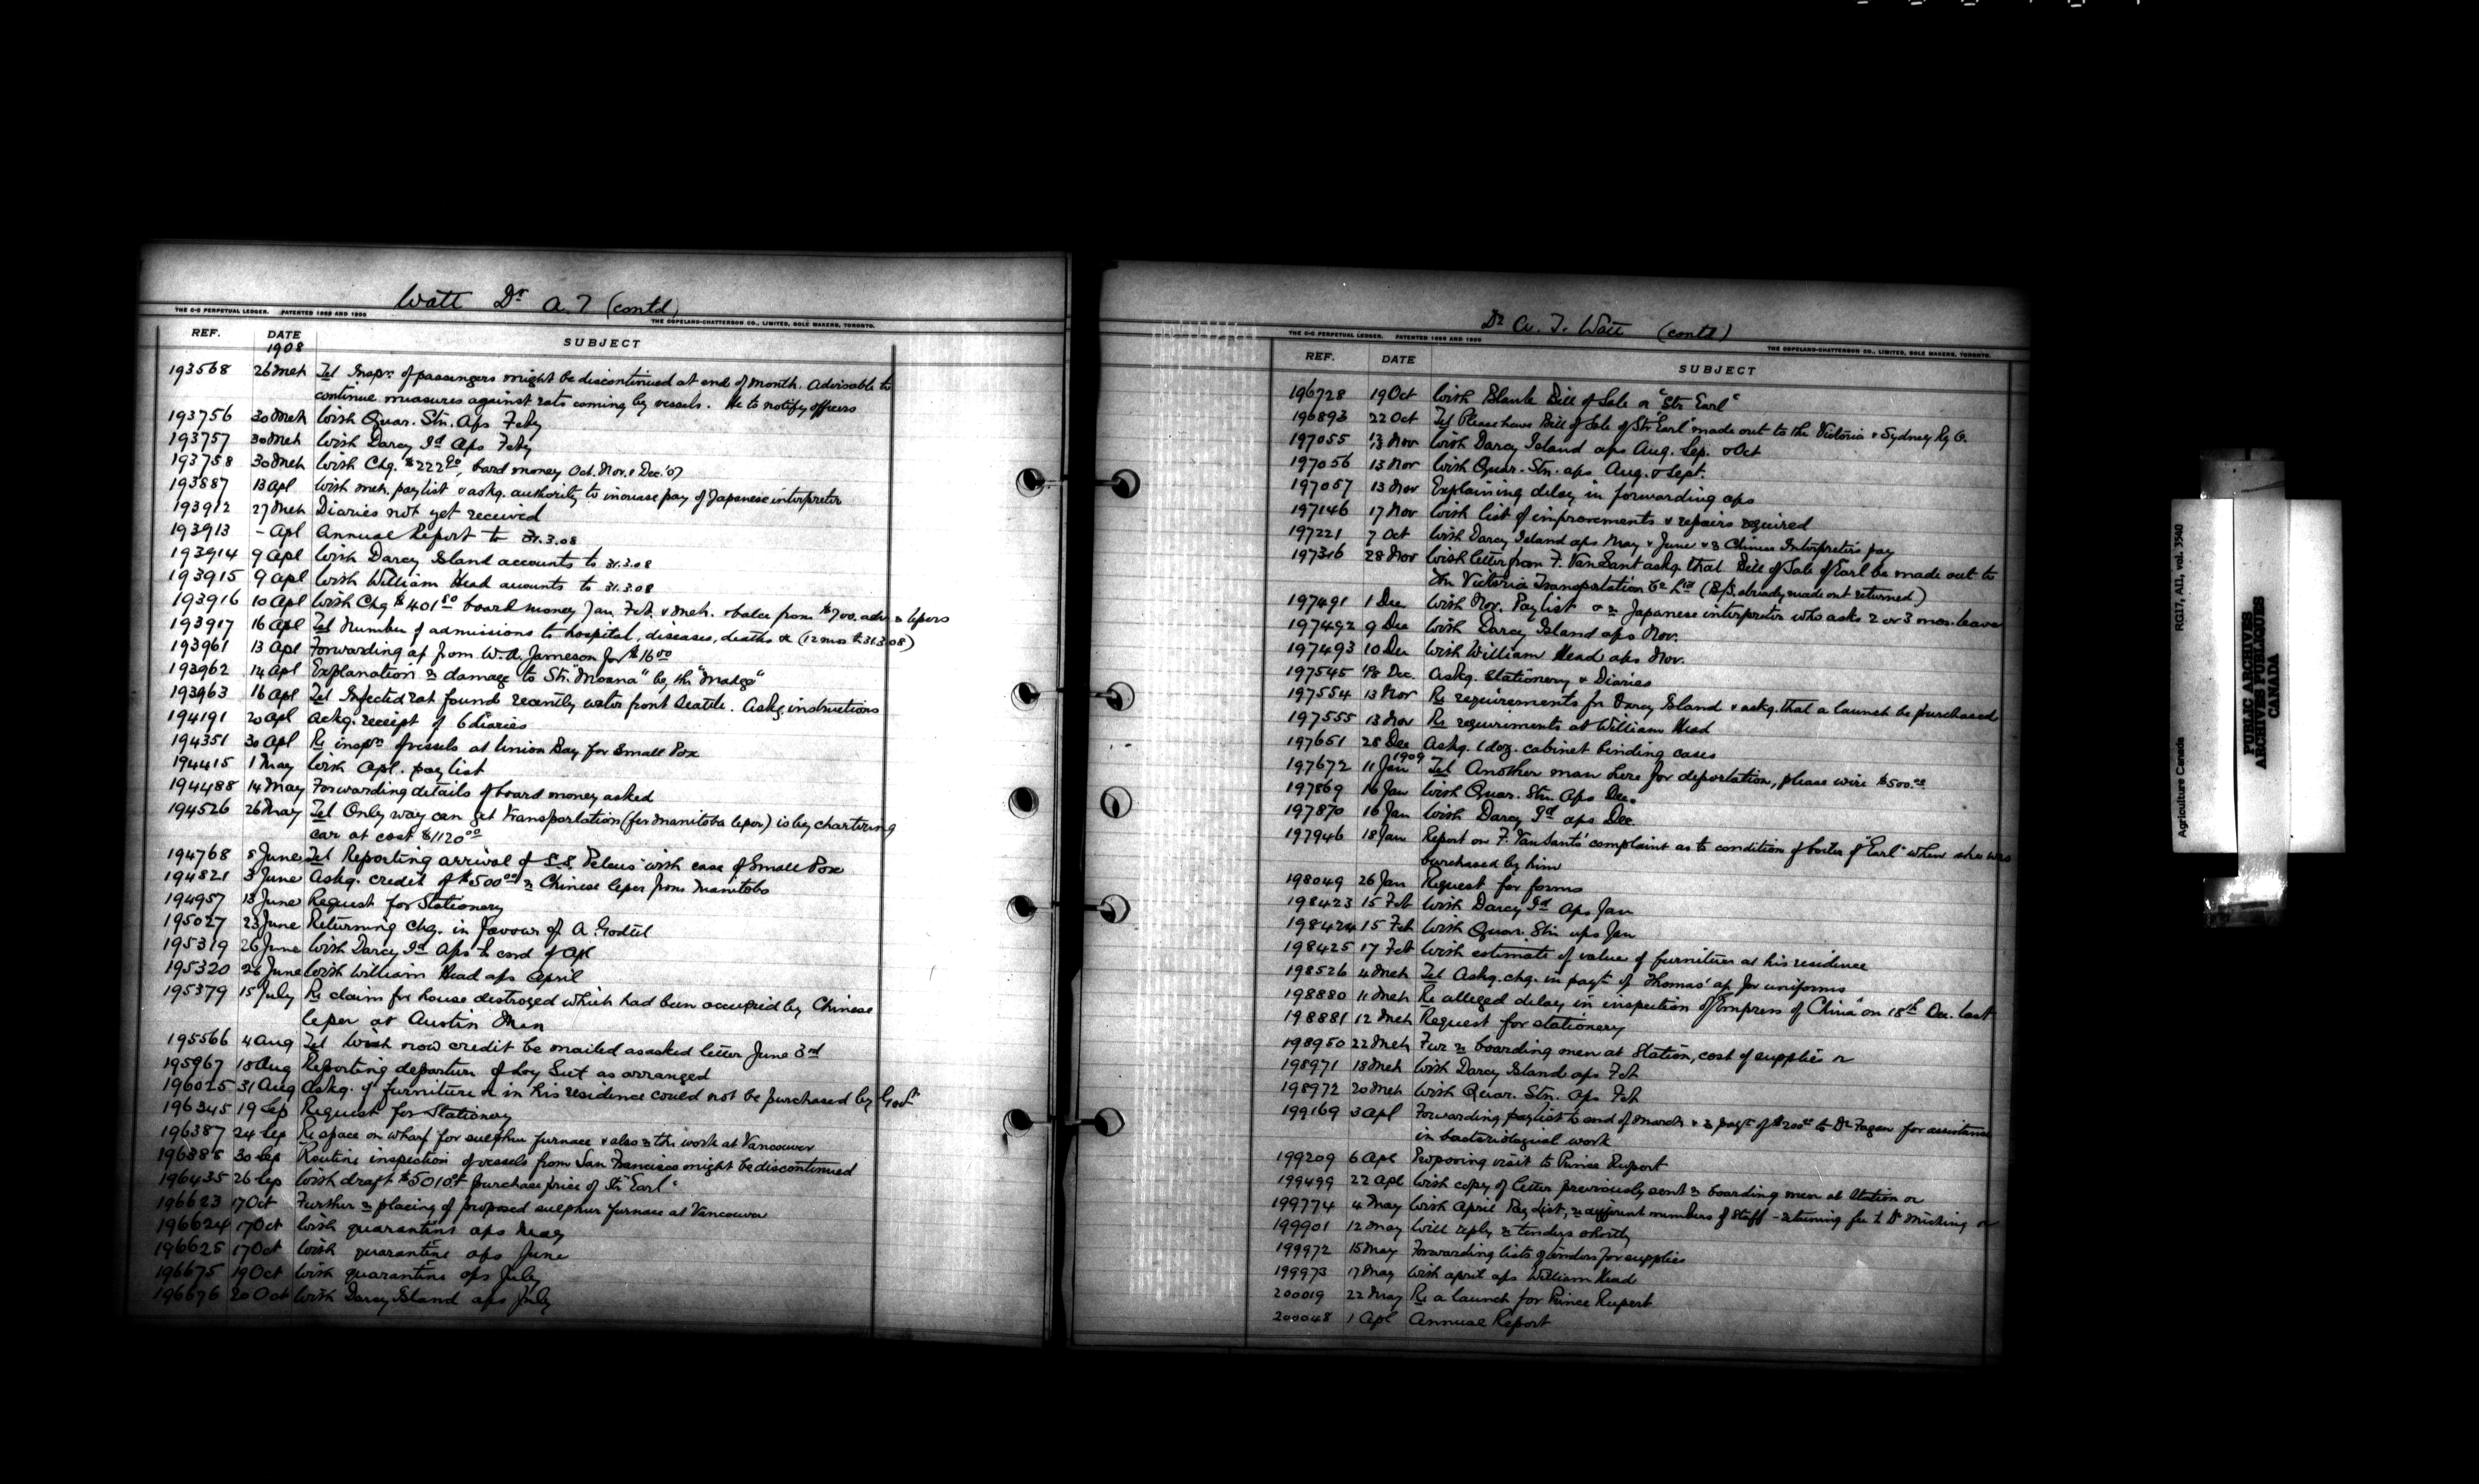 Watt Dr A. T (contd)
THE C-C PERPETUAL LEDGER. PATENTED 1899 AND 1900
THE COPELAND-CHATTERSON CO., LIMITED, SOLE MAKERS, TORONTO.
REF. DATE SUBJECT
1908
193568 26 Mch Tel Inspn of passengers might be discontinued at end of month. Advisable to
continue measures against rats coming by vessels. He to notify officers
193756 30 Mch With Quar. Stn. Aps Feby
193757 30 Mch With Darcy Id Aps Feby
193758 30 Mch With Chq. $222.00, board money Oct. Nov. & Dec. '07
193887 13 Apl With Mch. paylist & askg. authority to increase pay of Japanese interpreter
193912 27 Mch Diaries not yet received
193913 - Apl Annual Report to 31.3.08
193914 9 Apl With Darcy Island accounts to 31.3.08
193915 9 Apl With William Head acounts to 31.3.08
193916 10 Apl With Chq $401.50 board money Jan, Feb. & Mch. & balce from $700. adv re lepers
193917 16 Apl Tel Number of admissions to hospital, diseases, deaths &c (12 mos to 31.3.08)
193961 13 Apl Forwarding ap from W.A. Jameson for $16.00
193962 14 Apl Explanation re damage to Str. "Moana" by the "Madge"
193963 16 Apl Tel Infected rat found recently water front Seattle. Askg. instructions
194191 20 Apl Ackg. receipt of 6 diaries
194351 30 Apl Re inspn of vessels at Union Bay for Small Pox
194415 1 May With Apl. pay list
194488 14 May Forwarding details of board money asked
194526 26 May Tel Only way can get transportation (for Manitoba leper) is by chartering
car at cost $1120.00
194768 5 June Tel Reporting arrival of S.S. "Peleus" with case of Small Pox
194821 3 June Askg. credit of $500.00 re Chinese leper from Manitoba
194957 13 June Request for Stationery
195027 23 June Returning chq. in favour of A. Godtel
195319 26 June With Darcy Id Aps to end of Apl
195320 26 June With William Head aps April
195379 15 July Re claim for house destroyed which had been occupied by Chinese
leper at Austin Man
195566 4 Aug Tel Wish now credit be mailed as asked letter June 3rd
195967 18 Aug Reporting departure of Loy Sut as arranged
196025 31 Aug Askg. if furniture &c in his residence could not be purchased by Govt
196345 19 Sep Request for Stationery
196387 24 Sep Re space on wharf for sulphur furnace & also re the work at Vancouver
196388 30 Sep Routine inspection of vessels from San Francisco might be discontinued
196435 26 Sep With draft $5010.00 purchase price of Str "Earl"
196623 17 Oct Further re placing of proposed sulphur furnace at Vancouver
196624 17 Oct With quarantine aps May
196625 17 Oct With quarantine aps June
196675 19 Oct With quarantine aps July
196676 20 Oct With Darcy Island aps July
Dr A. T. Watt (contd)
THE C-C PERPETUAL LEDGER. PATENTED 1899 AND 1900
THE COPELAND-CHATTERSON CO., LIMITED, SOLE MAKERS, TORONTO.
REF. DATE SUBJECT
196728 19 Oct With Blank Bill of Sale re "Str Earl"
196893 22 Oct Tel Please have Bill of Sale of Str "Earl" made out to the Victoria & Sydney Ry Co.
197055 13 Nov With Darcy Island aps Aug. Sep. & Oct
197056 13 Nov With Quar. Stn. aps Aug. & Sept.
197057 13 Nov Explaining delay in forwarding aps
197146 17 Nov With list of improvements & repairs required
197221 7 Oct With Darcy Island aps May & June & re Chinese Interpreter's pay
197316 28 Nov With letter from F. Van Sant askg. that Bill of Sale of Earl be made out to
the Victoria Transportation Co. Ltd (B/S. already made out returned)
197491 1 Dec With Nov. Pay list & re Japanese interpreter who asks 2 or 3 mos. leave
197492 9 Dec With Darcy Island aps Nov.
197493 10 Dec With William Head aps Nov.
197545 18 Dec. Askg. Stationery & Diaries
197554 13 Nov Re requirements for Darcy Island & askg. that a launch be purchased
197555 13 Nov Re requirements at William Head
197651 28 Dec Askg. 1 doz. cabinet binding cases
1909
197672 11 Jan Tel Another man here for deportation, please wire $500.00
197869 16 Jan With Quar. Stn. Aps Dec.
197870 16 Jan With Darcy Id aps Dec.
197946 18 Jan Report on F. Van Sant's complaint as to condition of boiler of "Earl" when she was
purchased by him
198049 26 Jan Request for forms
198423 15 Feb With Darcy Id Aps Jan
198424 15 Feb With Quar. Stn aps Jan
198425 17 Feb With estimate of value of furniture at his residence
198526 4 Mch Tel Askg. chq. in payt of Thomas' ap for uniforms
198880 11 Mch Re alleged delay in inspection of "Empress of China" on 18th Dec. last
198881 12 Mch Request for stationery
198950 22 Mch Fur re boarding men at Station, cost of supplies &c
198971 18 Mch With Darcy Island aps Feb
198972 20 Mch With Quar. Stn. Aps Feb
199169 3 Apl Forwarding paylist to end of March & re payt of $200.00 to Dr Fagan for assistance
in bacteriological work
199209 6 Apl Proposing visit to Prince Rupert
199499 22 Apl With copy of letter previously sent re boarding men at Station &c
199774 4 May With April Pay List, re different members of Staff - retaining fee to Dr &c
199901 12 May Will reply re tenders shortly
199972 15 May Forwarding lists of tenders for supplies
199973 17 May With April aps William Head
200019 22 May Re a launch for Prince Rupert
200048 1 Apl Annual Report
Agriculture Canada RG17, AII, vol. 3540
PUBLIC ARCHIVES
ARCHIVES PUBLIQUES
CANADA